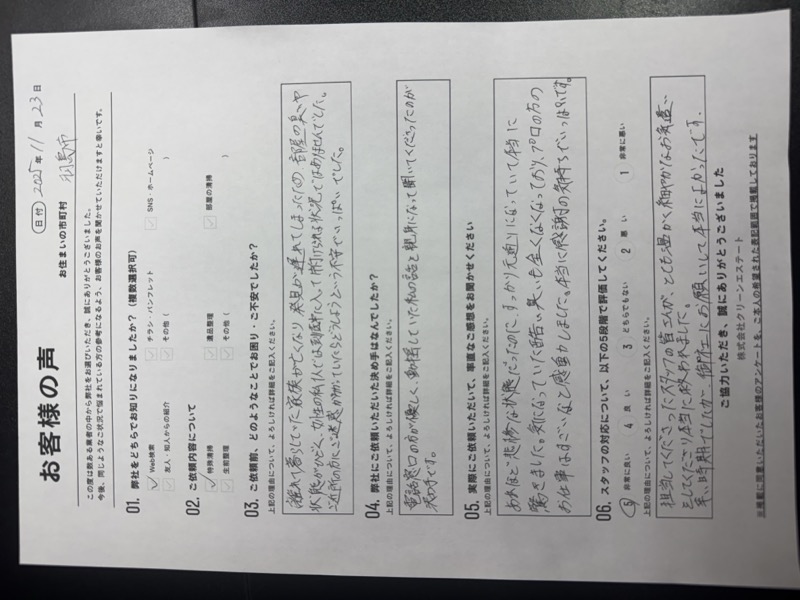 お客様の声
日付 2025年 11月 23日
お住まいの市町村 羽島市
この度は数ある業者の中から弊社をお選びいただき、誠にありがとうございました。
今後、同じようなご状況で悩まれている方の参考になるよう、お客様のお声を聞かせていただけますと幸いです。
01. 弊社をどちらでお知りになりましたか？（複数選択可）
Web検索 チラシ・パンフレット SNS・ホームページ
友人・知人からの紹介 その他（ ）
02. ご依頼内容について
特殊清掃 遺品整理 部屋の清掃
生前整理 その他（ ）
03. ご依頼前、どのようなことでお困り・ご不安でしたか？
上記の理由について、よろしければ詳細をご記入ください。
離れて暮らしていた家族が亡くなり、発見が遅れてしまったため、部屋の臭いや
状態がひどく、女性の私1人では到底中に入って片付けられる状況ではありませんでした。
ご近所の方にご迷惑がかかっていたらどうしようという不安でいっぱいでした。
04. 弊社にご依頼いただいた決め手はなんでしたか？
上記の理由について、よろしければ詳細をご記入ください。
電話窓口の方が優しく、動揺していた私の話を親身になって聞いてくださったのが
決め手です。
05. 実際にご依頼いただいて、率直なご感想をお聞かせください
上記の理由について、よろしければ詳細をご記入ください。
あれほど悲惨な状態だったのに、すっかり元通りになっていて本当に
驚きました。気になっていた酷い臭いも全くなくなっており、プロの方の
お仕事はすごいなと感動しました。本当に感謝の気持ちでいっぱいです。
06. スタッフの対応について、以下の5段階で評価してください。
5 非常に良い 4 良い 3 どちらでもない 2 悪い 1 非常に悪い
上記の理由について、よろしければ詳細をご記入ください。
担当してくださったスタッフの皆さんが、とても温かく細やかなお気遣い
をしてくださり本当に救われました。
辛い時期でしたが、御社にお願いして本当によかったです。
ご協力いただき、誠にありがとうございました
株式会社クリーンエステート
※掲載に同意いただいたお客様のアンケートを、ご本人の希望された表記範囲で掲載しております